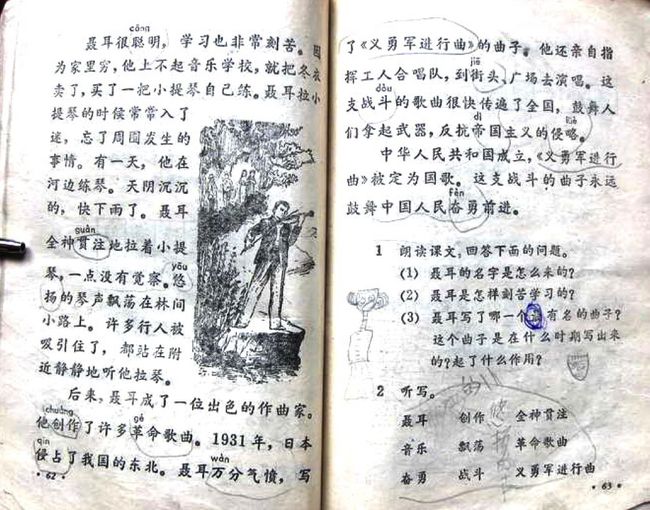 cōng
聂耳很聪明，学习也非常刻苦。因
为家里穷，他上不起音乐学校，就把冬衣
卖了，买了一把小提琴自己练。聂耳拉小
提琴的时候常常入了
迷，忘了周围发生的
事情。有一天，他在
河边练琴。天阴沉沉
的，快下雨了。聂耳
guàn
全神贯注地拉着小提
琴，一点没有觉察。悠
yōu
扬的琴声飘荡在林间
小路上。许多行人被
吸引住了，都站在附
近静静地听他拉琴。
后来，聂耳成了一位出色的作曲家。
chuàng gé
他创作了许多革命歌曲。1931年，日本
qīn wàn
侵占了我国的东北。聂耳万分气愤，写
·62·
了《义勇军进行曲》的曲子。他还亲自指
jiē
挥工人合唱队，到街头、广场去演唱。这
dòu
支战斗的歌曲很快传遍了全国，鼓舞人
dì lüè
们拿起武器，反抗帝国主义的侵略。
中华人民共和国成立，《义勇军进行
曲》被定为国歌。这支战斗的曲子永远
fèn
鼓舞中国人民奋勇前进。
1 朗读课文，回答下面的问题。
(1) 聂耳的名字是怎么来的？
(2) 聂耳是怎样刻苦学习的？
(3) 聂耳写了哪一个最有名的曲子？
这个曲子是在什么时期写出来
的？起了什么作用？
2 听写。
聂耳 创作 全神贯注
音乐 飘荡 革命歌曲
奋勇 战斗 义勇军进行曲
·63·